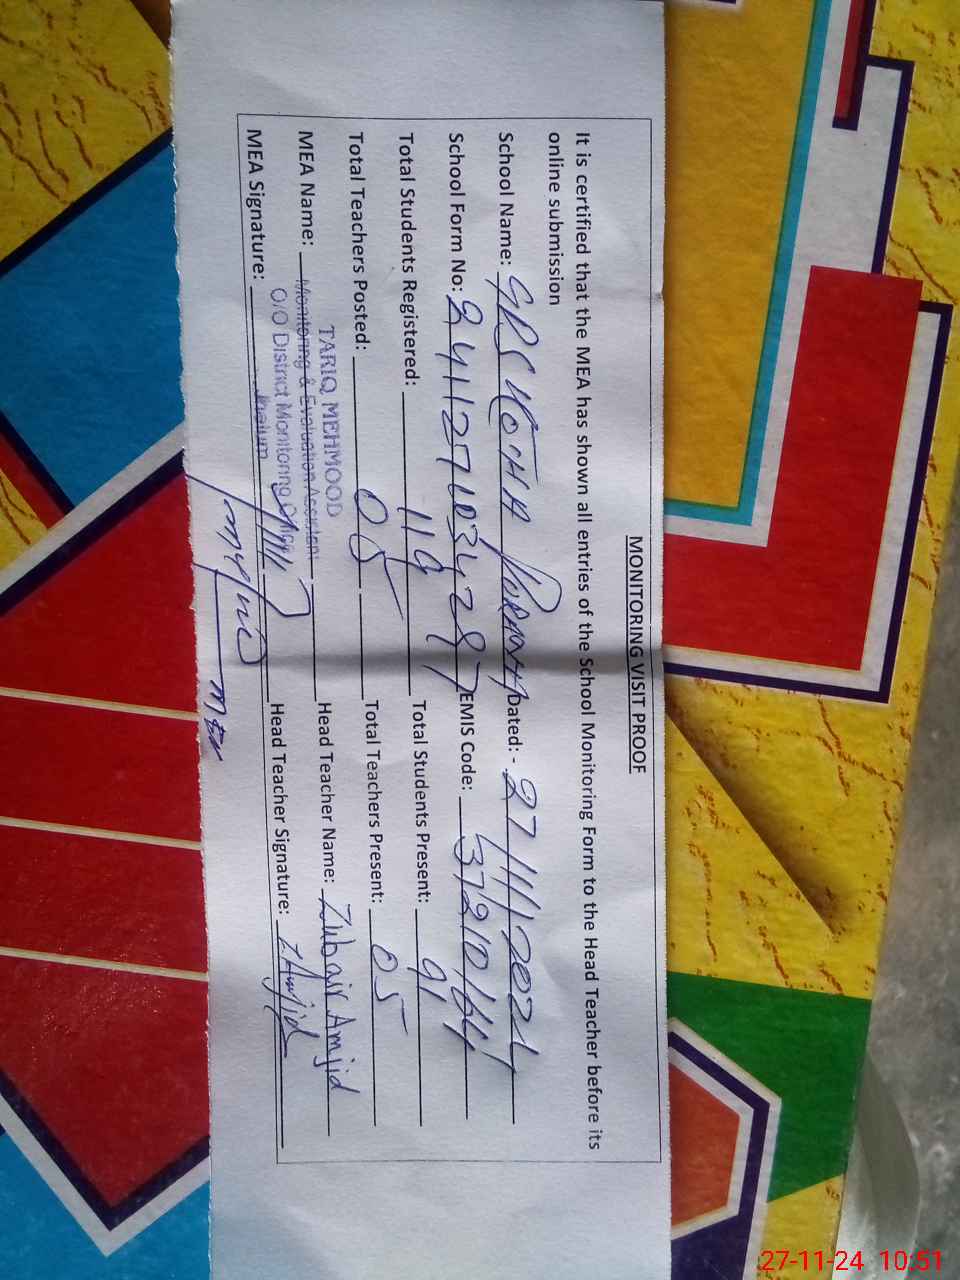 MONITORING VISIT PROOF
It is certified that the MEA has shown all entries of the School Monitoring Form to the Head Teacher before its
online submission
School Name: GPS Dated: - 27/11/2024
School Form No: EMIS Code: 37210164
Total Students Registered: 119 Total Students Present: 91
Total Teachers Posted: 05 Total Teachers Present: 05
TARIQ MEHMOOD
MEA Name: Monitoring & Evaluation Assistant Head Teacher Name: Zubair Amjid
O/O District Monitoring Officer
Jhelum
MEA Signature: Head Teacher Signature: Z Amjid
MEA
27-11-24 10:51